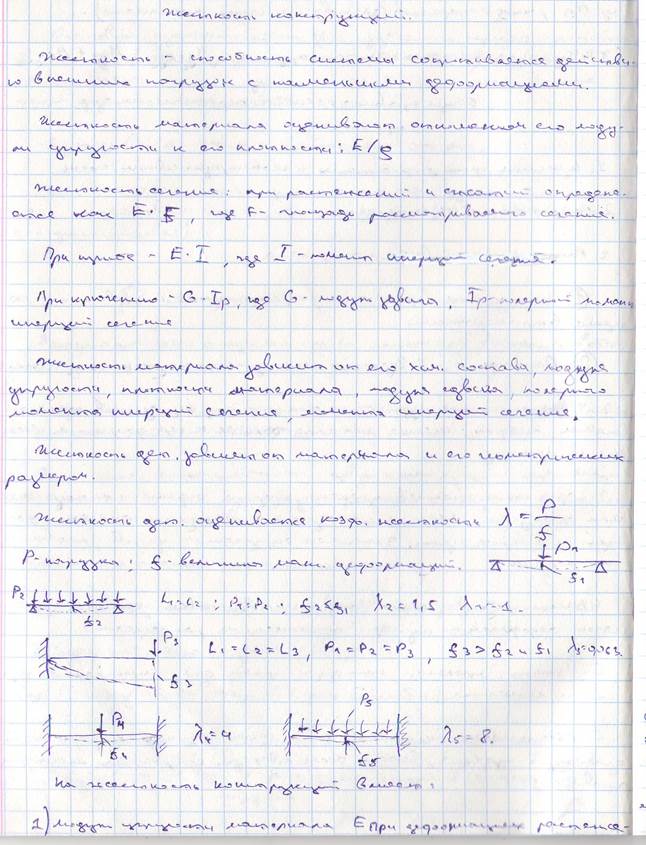 Жесткость конструкций.
Жесткость - способность системы сопротивляться действи-
ю внешних нагрузок с наименьшими деформациями.
Жесткость материала оценивают отношением его моду-
ля упругости к его плотности: E/ρ
Жесткость сечения: при растяжений и сжатий определя-
ется как E·F, где F- площадь рассматриваемого сечения.
При изгибе - E·I, где I - момент инерций сечения.
При кручению - G·Ip, где G- модуль сдвига, Ip- полярный момент
инерций сечения
Жесткость материала зависит от его хим. состава, модуля
упругости, плотности материала, модуля сдвига, полярного
момента инерций сечения, момента инерций сечения.
Жесткость дет. зависит от материала и его геометрических
размеров.
Жесткость дет. оценивается коэф. жесткости λ = P/f
P- нагрузка; f- величина макс. деформаций.
P1
f1
P2
f2
L1=L2; P1=P2; f2≤f1 λ2=1,5 λ1=1.
P3
f3
L1=L2=L3, P1=P2=P3, f3>f2 и f1 λ3=0,063
P4
f4
λ4=4
P5
f5
λ5=8.
На жесткость конструкций влияет:
1) Модуль упругости материала E При деформациях растяже-